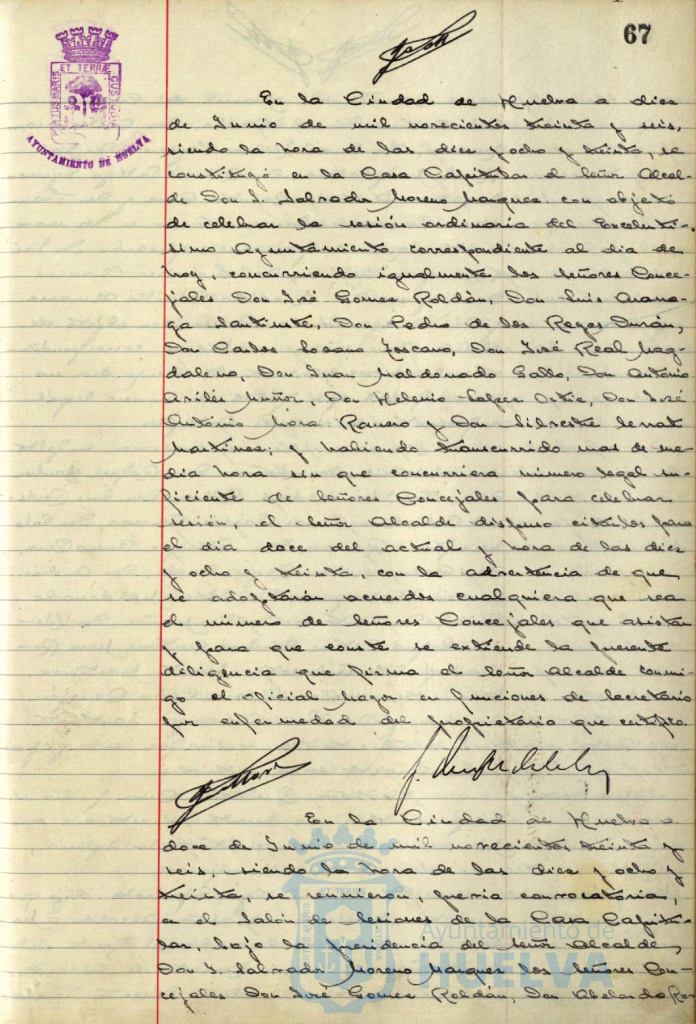 67
PORTUS MARIS ET TERRAE CUSTODIA
AYUNTAMIENTO DE HUELVA
En la Ciudad de Huelva a diez
de Junio de mil novecientos treinta y seis,
siendo la hora de las diez y ocho y treinta, se
constituyó en la Casa Capitular el Señor Alcal-
de Don J. Salvador Moreno Marquez con objeto
de celebrar la sesión ordinaria del Excelentí-
simo Ayuntamiento correspondiente al dia de
hoy, concurriendo igualmente los Señores Conce-
jales Don José Gomez Roldán, Don Luis
Don Pedro de los Reyes Durán,
Don Carlos Lozano Toscano, Don José Real Mag-
daleno, Don Juan Maldonado Gallo, Don Antonio
Avilés Muñoz, Don Helenio Lopez Ortiz, Don José
Antonio Mora Romero y Don Silvestre Serrat
Martinez; y habiendo transcurrido mas de me-
dia hora sin que concurriera número legal su-
ficiente de Señores Concejales para celebrar
sesión, el Señor Alcalde dispuso citarlos para
el dia doce del actual y hora de las diez
y ocho y treinta, con la advertencia de que
se adoptarán acuerdos cualquiera que sea
el número de Señores Concejales que asistan
y para que conste se extiende la presente
diligencia que firma el Señor Alcalde conmi-
go el Oficial Mayor en funciones de Secretario
por enfermedad del propietario que certifico.
En la Ciudad de Huelva a
doce de Junio de mil novecientos treinta y
seis, siendo la hora de las diez y ocho y
treinta, se reunieron, previa convocatoria,
en el Salón de Sesiones de la Casa Capitu-
lar, bajo la presidencia del Señor Alcalde
Don J. Salvador Moreno Marquez los Señores Con-
cejales Don José Gomez Roldán, Don Abelardo Ro-
Ayuntamiento de
HUELVA